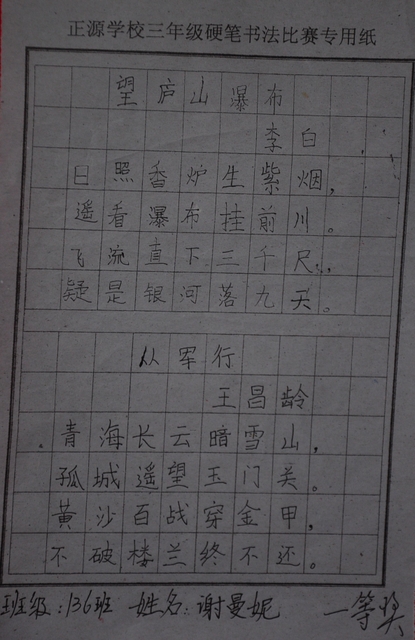 正源学校三年级硬笔书法比赛专用纸
望庐山瀑布
李白
日照香炉生紫烟，
遥看瀑布挂前川。
飞流直下三千尺，
疑是银河落九天。
从军行
王昌龄
青海长云暗雪山，
孤城遥望玉门关。
黄沙百战穿金甲，
不破楼兰终不还。
班级：136班 姓名：谢曼妮 一等奖